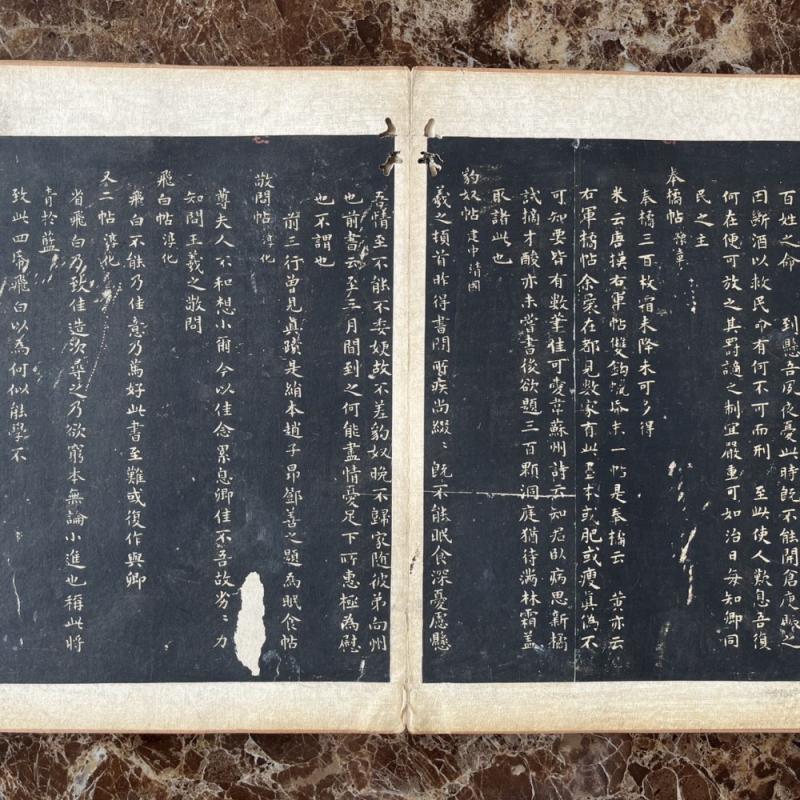 百姓之命 到懸吾夙夜憂此時既不能開倉庾賑之
因斷酒以救民命有何不可而刑 至此使人歎息吾復
何在便可放之其罸謫之制宜嚴重可如治日每知卿同
民之主
奉橘帖 豫章
奉橘三百枚霜未降未可多得
米云唐摸右軍帖雙鉤蠟紙末一帖是奉橘云 黃亦云
右軍橘帖余嵗在都見數家有此墨本或肥或瘦真偽不
可知要皆有數筆佳可愛韋蘇州詩云知君臥病思新橘
試摘才酸亦未黃書後欲題三百顆洞庭猶待滿林霜蓋
取諸此也
豹奴帖 建中靖國
羲之頓首昨得書問所疾尚綴綴既不能眠食深憂慮懸
吾情至不能不委嫂故不差豹奴晚不歸家隨彼弟向州
也前書云至三月間到之何能盡情憂足下所惠極為慰
也不謂也
前三行曾見真蹟是絹本趙子昂鄧善之題為眠食帖
敬問帖 淳化
尊夫人不和想小爾今以佳念累息卿佳不吾故劣劣力
知問王羲之敬問
飛白帖 淳化
飛白不能乃佳意乃篤好此書至難或復作與卿
又二帖 淳化
省飛白乃致佳造次尋之乃欲窮本無論小進也稱此將
青於藍
致此四紙飛白以為何似能學不